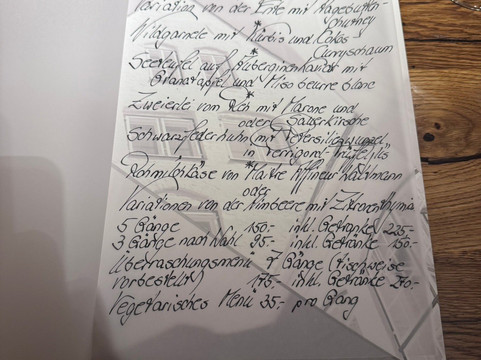 Variation von der Ente mit Hagebutten-
chutney
*
Wildgarnele mit Kürbis und Kokos
Curryschaum
*
Seeteufel auf Auberginenkaviar mit
Granatapfel und Miso beurre blanc
*
Zweierlei vom Reh mit Marone und
oder Sauerkirsche
Schwarzfederhuhn mit Petersilienwurzel
in Perrigord Trüffeljus
*
Rohmilchkäse von Maître Affineur Waltmann
oder
Variationen von der Himbeere mit Zitronenthymian
5 Gänge 150.- inkl. Getränke 225.-
3 Gänge nach Wahl 95.- inkl. Getränke 150.-
Überraschungsmenü 7 Gänge (tischweise
vorbestellt) 175.- inkl. Getränke 270.-
Vegetarisches Menü 35.- pro Gang